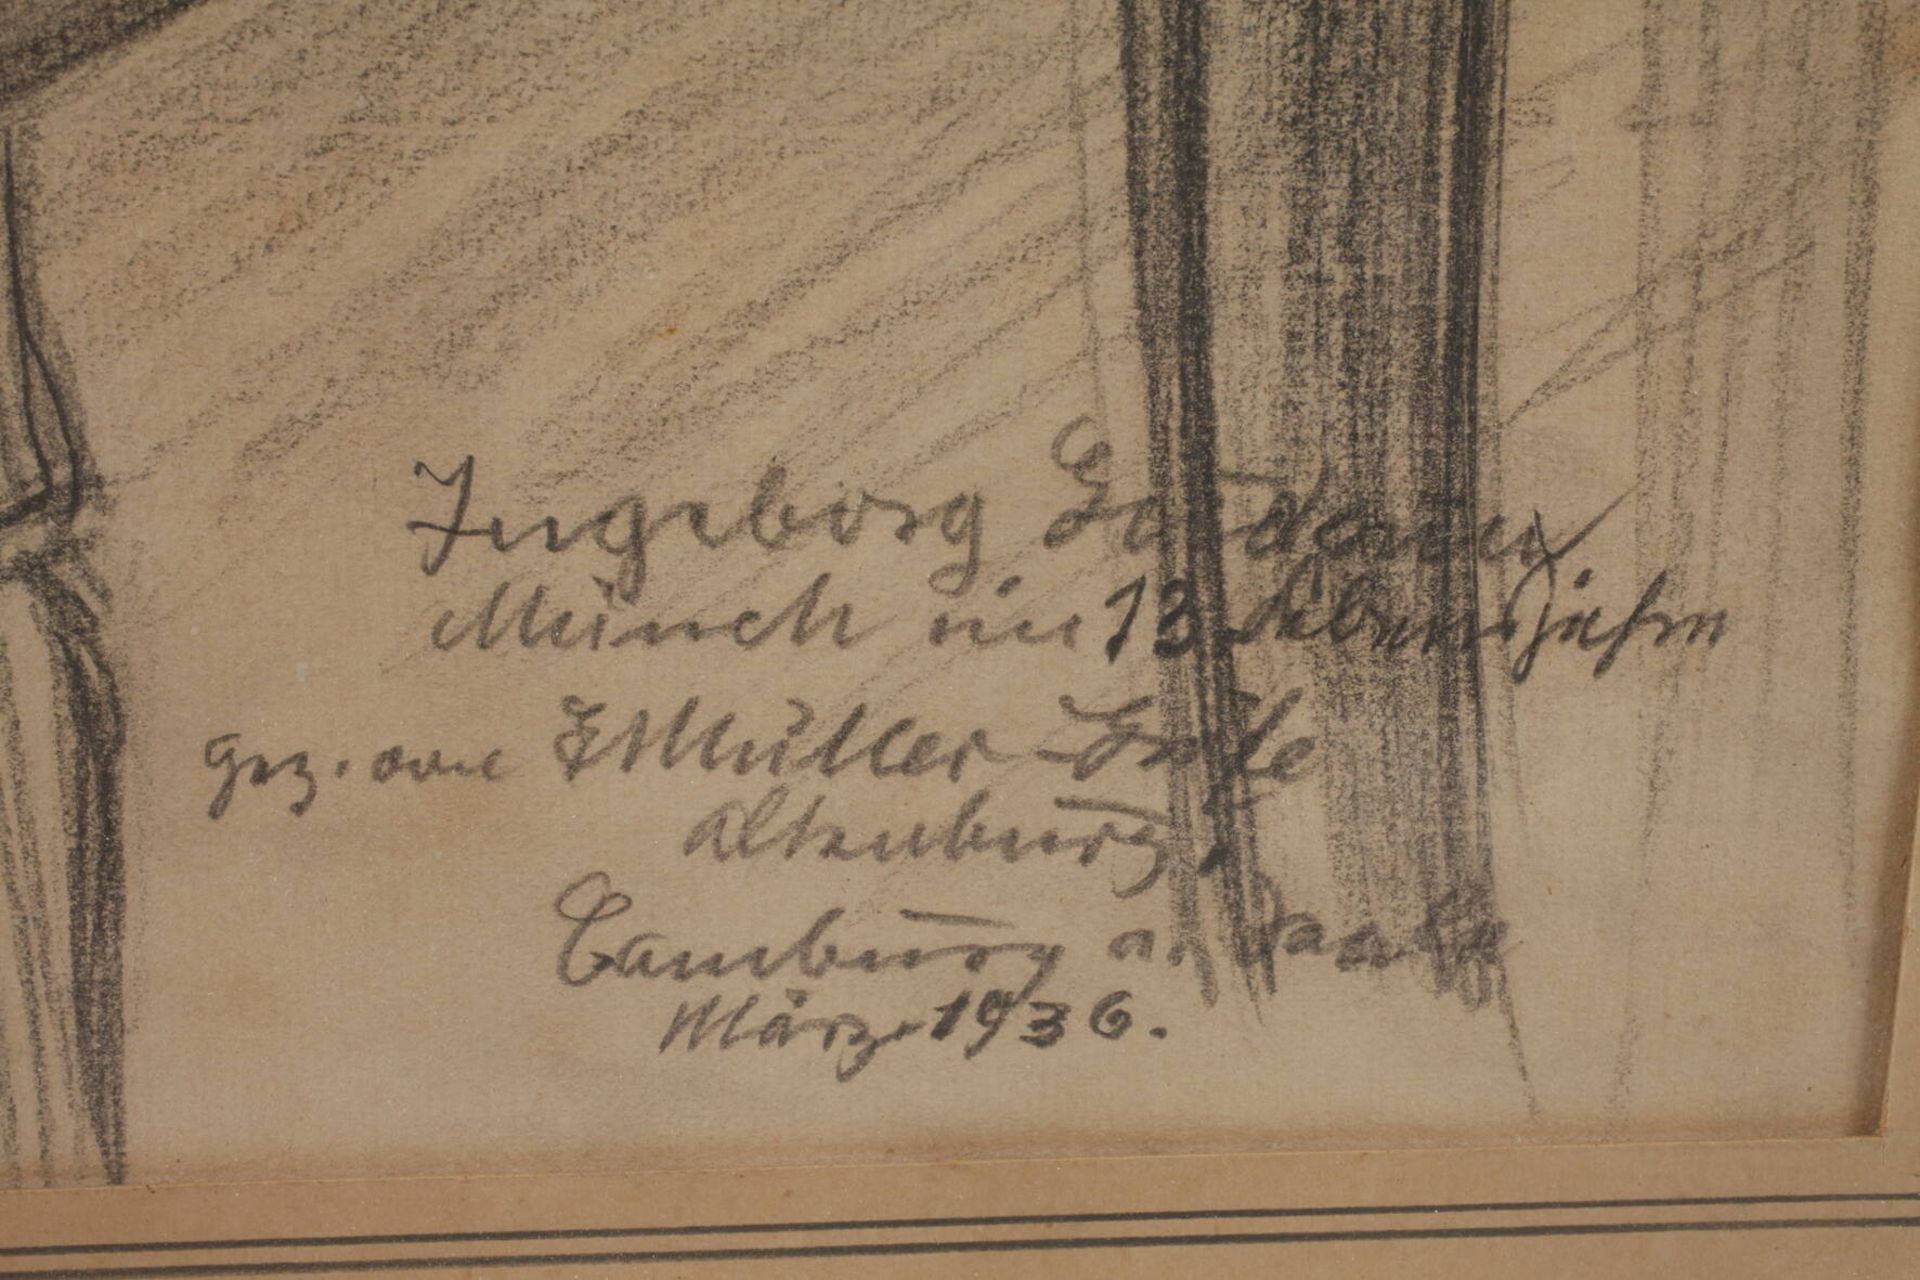 Ingeborg
Münch im 13 Lebensjahre
gez. von E Müller-Gräfe
Altenburg,
Camburg a. Saale
März 1936.